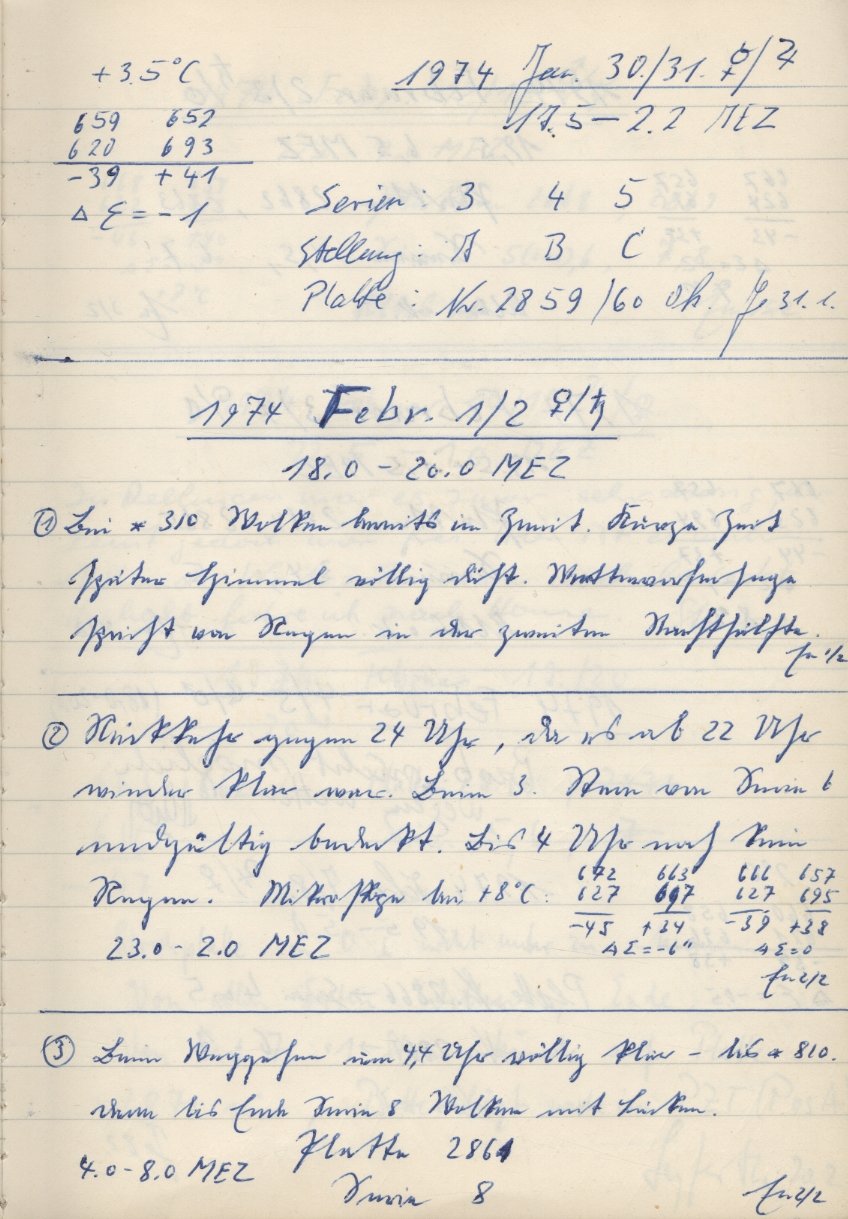 +3.5°C
1974 Jan. 30./31. ☿/♃
17.5 – 2.2 MEZ
659 652
620 693
-39 +41
Δ Σ = -1
Serien: 3 4 5
Stellung: A B C
Platte: Nr. 2859/60 31.1.
1974 Febr. 1/2 ♀/♄
18.0 – 20.0 MEZ
① Bei * 310 Wolken bereits im Zenit. Kurze Zeit
später Himmel völlig dicht. Wettervorhersage
spricht von Regen in der zweiten Nachthälfte.
1/2
② Rückkehr gegen 24 Uhr, da es ab 22 Uhr
wieder klar war. Beim 3. Stern von Serie 6
endgültig bedeckt. Bis 4 Uhr noch kein
Regen. Mikroskope bei +8°C:
672 663 666 657
627 697 627 695
-45 +34 -39 +38
ΔΣ=-6" ΔΣ=0
23.0 - 2.0 MEZ
2/2
③ Beim Weggehen um 4,4 Uhr völlig klar – bis * 810.
dann bis Ende Serie 8 Wolken mit Lücken.
Platte 2861
4.0-8.0 MEZ
Serie 8
2/2